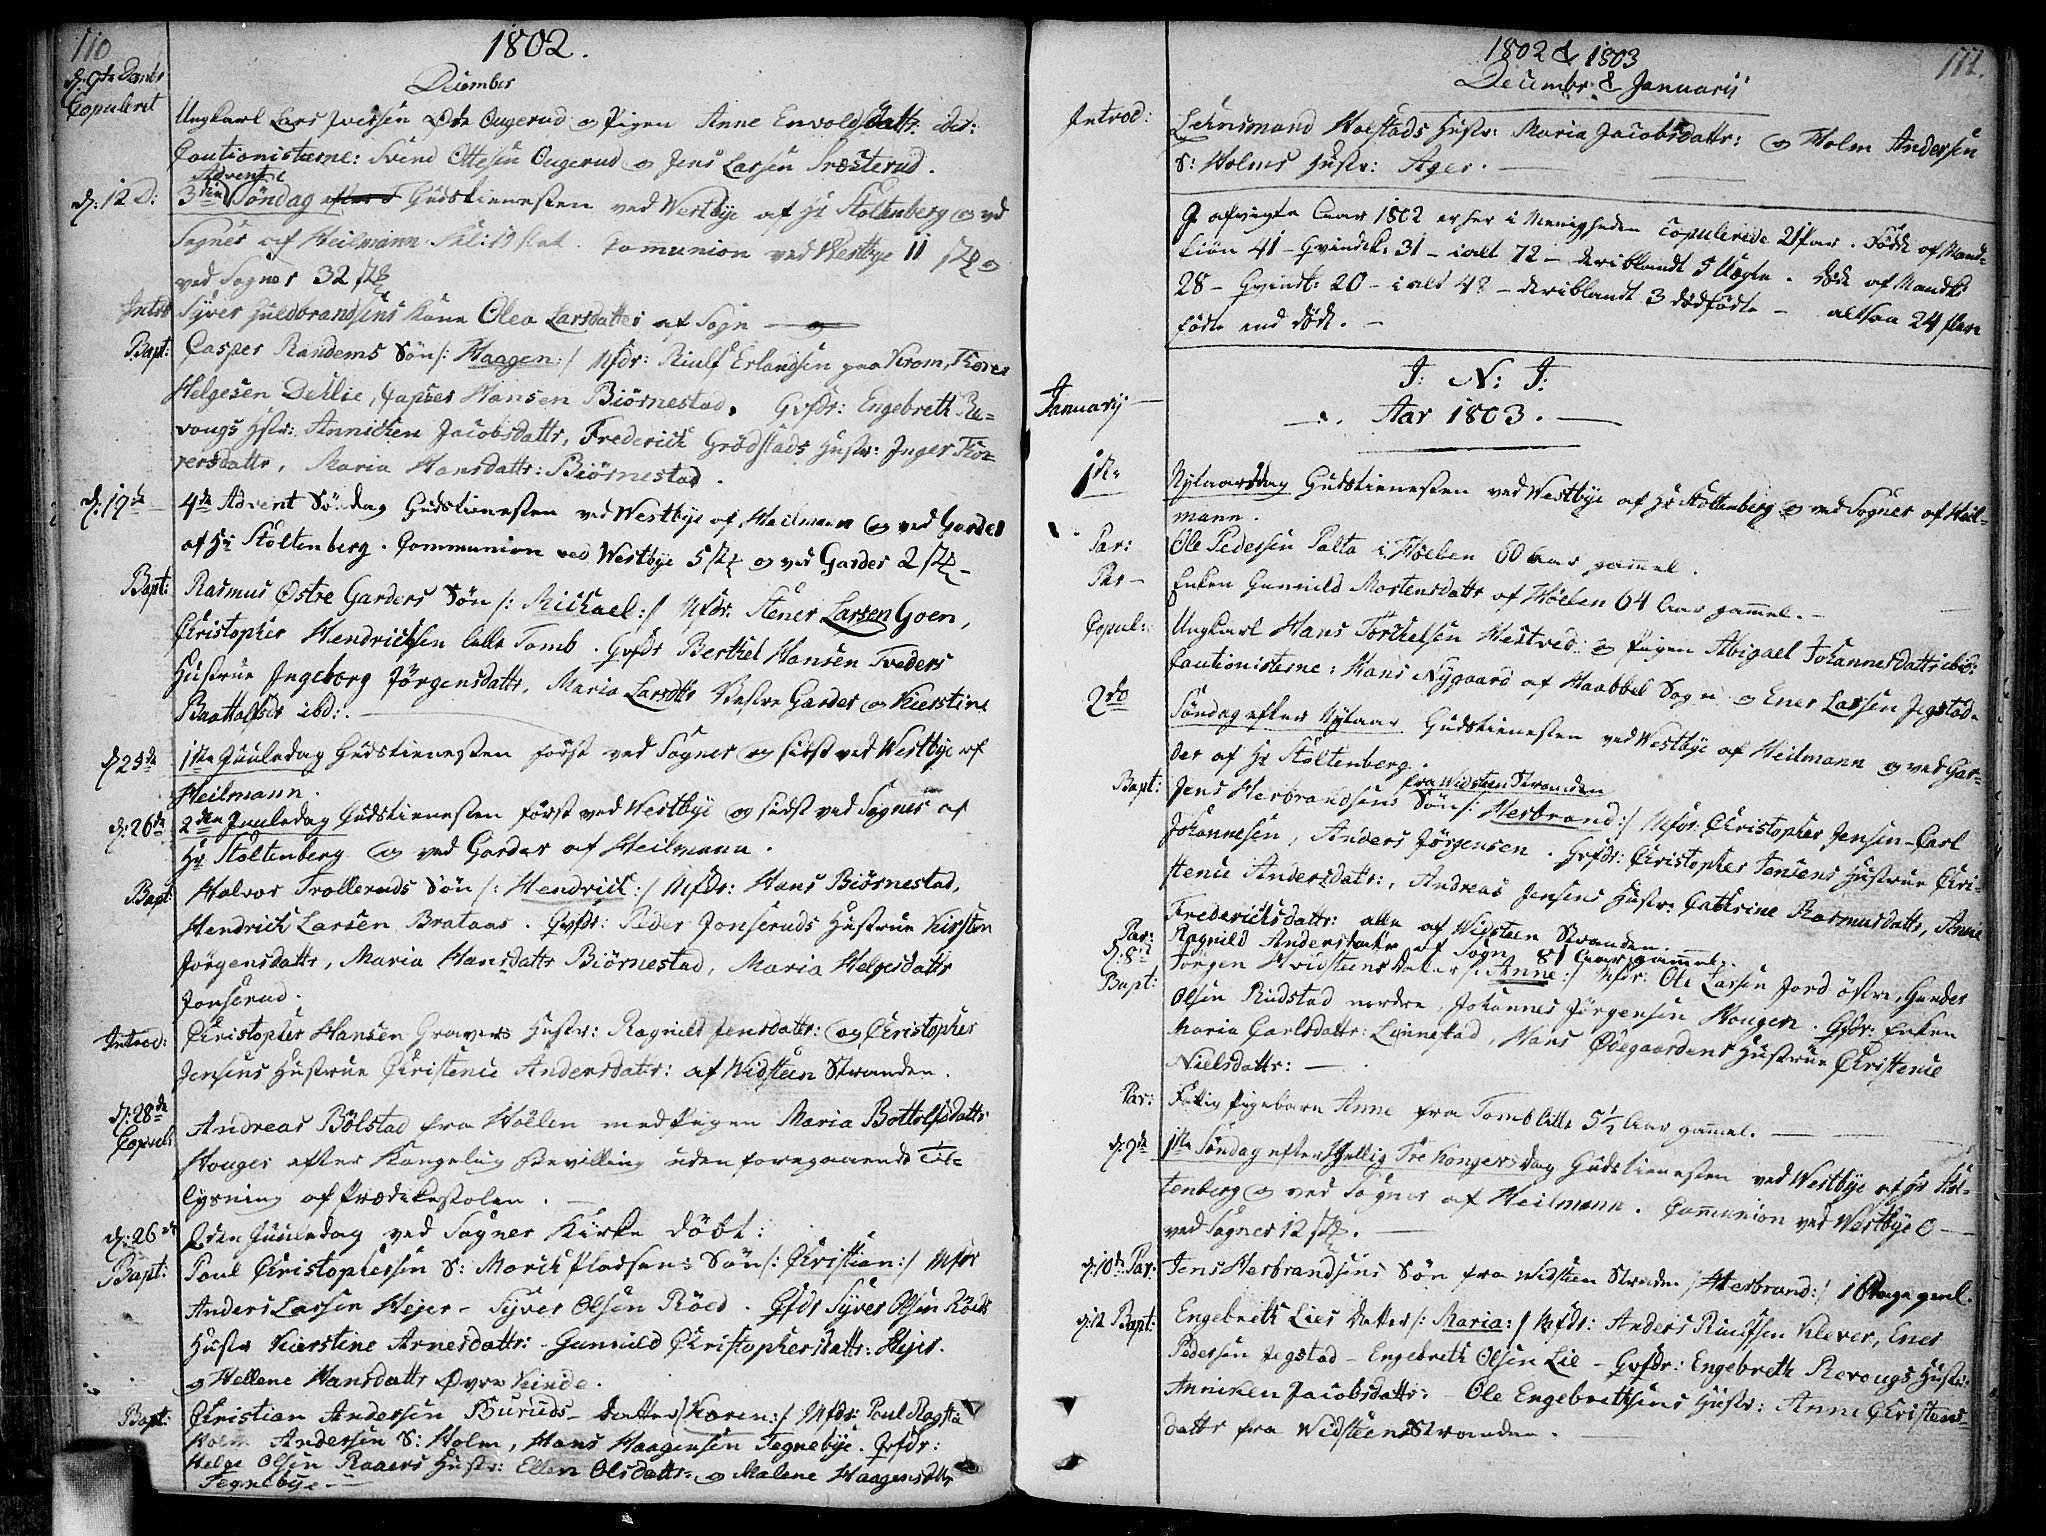 110
1802.
December
d: 9de Decbr
Copuleret
Ungkarl Lars Iversen Øvre Ougerud og Pigen Anne Envoldsdattr ibd:
Cautionisterne: Svend Ottesen Ougerud og Jens Larsen Træsterud.
Advent
d: 12 D: 3die Søndag Gudstienesten ved Westbye af Hr Stoltenberg og ved
Sogner af Heilmann. Communion ved Westbye 11 og
ved Sogner 32
Intro Syver Guldbrandsens Kone Olea Larsdatter af Sogn
Bapt: Casper Randems Søn /: Haagen :/ Mfdr: Riulf Erlandsen paa Krom, Tho
Helgesen Dehlie, Casper Hansen Biørnestad. Qvfdr: Engebreth Re-
vougs Hstr: Annichen Jacobsdattr, Frederich Grødstads Hustr: Inger Tho-
resdattr, Maria Hansdattr: Biørnestad.
d: 19de 4de Advent Søndag Gudstienesten ved Westbye af Heilmann og ved Garder
af Hr Stoltenberg. Communion ved Westbye 5 og ved Garder 2
Bapt: Rasmus Østre Garders Søn /: Michael :/ Mfdr: Stener Larsen Goen,
Christopher Hendrichsen lille Tomb. Qvfdr Berthel Hansen Tveders
Hustrue Ingeborg Jørgensdattr, Maria Larsdttr Vestre Garder og Kierstine
Baattolfsdr ibd:.
d 25de 1ste Juuledag Gudstienesten først ved Sogner og sidst ved Westbye af
Heilmann.
d: 26de 2den Juuledag Gudstienesten først ved Westbye og sidst ved Sogner af
Hr Stoltenberg og ved Garder af Heilmann.
Bapt: Halvor Trolleruds Søn /: Hendrich :/ Mfdr: Hans Biørnestad,
Hendrich Larsen Brataas. Qvfdr: Peder Jonseruds Hustrue Kirsten
Jørgensdattr, Maria Hansdattr Biørnestad, Maria Helgesdattr
Jonserud.
Introd: Christopher Hansen Gravers Hustr: Ragnild Jensdattr: og Christopher
Jensens Hustrue Christence Andersdatr: af Widsteen Stranden.
d: 28de
Copul: Andreas Bølstad fra Hollen med Pigen Maria Bottolfsdattr
Houger efter Kongelig Bevilling uden foregaaende Til-
lysning af Prædikestolen.
d: 26de 2den Juuledag ved Sogner Kirke døbt:
Bapt: Poul Christophersen S: Morch Pladsens Søn /: Christian :/ Mfdr
Anders Larsen Hejer - Syver Olsen Röed. Qfdr Syver Olsen Röeds
Hustr Kierstine Arnesdattr: - Gunnild Christophersdattr: Hejer.
og Hellene Hansdattr Øvre Kinde.
Bapt: Christian Andersen Buruds Datter /: Karen :/ Mfdr: Poul
Holm Andersen S: Holm, Hans Haagensen Tegnebye. Qvfdr:
Helge Olsen Raaers Hustr: Ellen Olsdattr: og Malene Haagensdttr
Tegnebye.
111.
1802 & 1803
Decembr: & Januarii
Introd: Lehnsmand Holstads Hustr: Maria Jacobsdattr: og Holm Andersen
S: Holms Hustr: Ager.
I afvigte Aar 1802 er her i Menigheden Copulerede 21 Par. Födde af Mand-
kiøn 41 - Qvindek: 31 - ialt 72 - deriblandt 5 Uægte. döde af Mandk:
28 - Qvindk: 20 - ialt 48 - deriblandt 3 dödfödte - altsaa 24 flere
födte end döde.
I: N: I:
January
Aar 1803.
1ste Nytaarsdag Gudstienesten ved Westbye af Hr Stoltenberg og ved Sogner af Heil-
mann.
Par: Ole Pedersen Palta i Höelen 60 Aar gammel.
Par Enken Gunnild Mortensdattr af Höelen 64 Aar gammel.
Copul: Ungkarl Hans Torkelsen Hestved og Pigen Abigael Johannesdattr ibid:
Cautionisterne: Hans Nygaard af Haabbel Sogn og Ener Larsen Jegstad.
2den Søndag efter Nytaar Gudstienesten ved Westbye af Heilmann og ved Gar-
der af Hr Stoltenberg.
fra Widsteen Stranden
Bapt: Jens Herbrandsens Søn /: Herbrand :/ Mfdr: Christopher Jensen - Carl
Johannesen, Anders Jørgensen. Qvfdr: Christopher Jensens Hustrue Chri-
stence Andersdattr:, Andreas Jensens Hustr: Cathrine Rasmusdattr, Anne
Frederichsdattr: alle af Widsteen Stranden.
Par: Ragnild Andersdattr af Sogn 81 Aar gammel.
d: 8de
Bapt: Jørgen Hvidsteens Datter /: Anne :/ Mfdr: Ole Larsen Jord östre, Gunder
Olsen Rudstad nordre, Johannes Jørgensen Hougen. Qfdr: Enken
Maria Carlsdattr: Linnestad, Hans Ødegaardens Hustrue Christence
Nielsdattr:
Par: Fattig Pigebarn Anne fra Tomb lille 5½ Aar gammel.
d: 9de 1ste Søndag efter Hellig Tre Kongers dag Gudstienesten ved Westbye af Hr Stol-
tenberg og ved Sogner af Heilmann. Communion ved Westbye 0
ved Sogner 12
d: 10de Par: Jens Herbrandsens Søn fra Widsteen Stranden /: Herbrand :/ 16 Dage gml.
d: 12 Bapt: Engebreth Lies Datter /: Maria :/ Mfdr: Anders Riulfsen Klever, Ener
Pedersen Jegstad - Engebreth Olsen Lie - Qvfdr: Engebreth Revougs Hustr:
Anniken Jacobsdattr: - Ole Engebrethsens Hustr: Anne Christens-
dattr fra Widsteen Stranden.